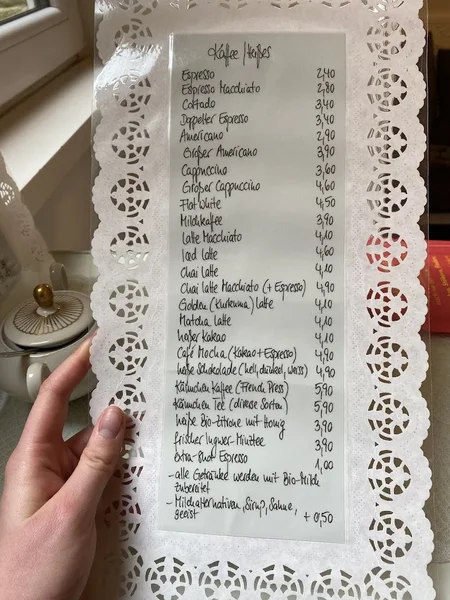 Kaffee / Heißes
Espresso 2,40
Espresso Macchiato 2,80
Cortado 3,40
Doppelter Espresso 3,40
Americano 2,90
Großer Americano 3,90
Cappuccino 3,60
Großer Cappuccino 4,60
Flat White 4,50
Milchkaffee 3,90
Latte Macchiato 4,10
Iced latte 4,60
Chai latte 4,10
Chai latte Macchiato (+ Espresso) 4,90
Golden (Kurkuma) latte 4,10
Matcha latte 4,10
heißer Kakao 4,10
Café Mocha (Kakao + Espresso) 4,90
heiße Schokolade (hell, dunkel, weiss) 4,90
Kännchen Kaffee (French Press) 5,90
Kännchen Tee (diverse Sorten) 5,90
heiße Bio-Zitrone mit Honig 3,90
frischer Ingwer-Minztee 3,90
extra-Shot Espresso 1,00
- alle Getränke werden mit Bio-Milch
zubereitet
- Milchalternativen, Sirup, Sahne,
geeist + 0,50